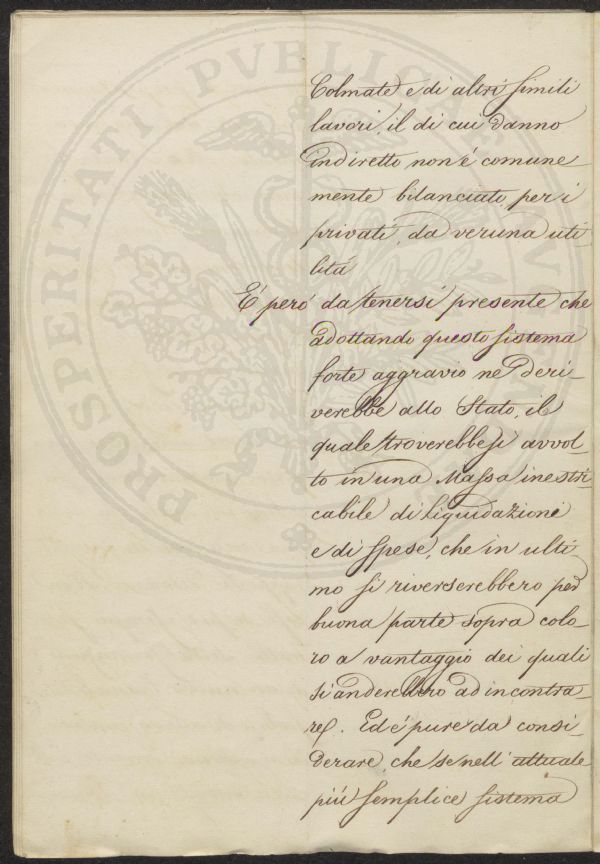 Colmate e di altri simili
lavori, il di cui danno
indiretto non é comune
mente bilanciato, per i
privati, da veruna uti
litá
É peró da tenersi presente che
adottando questo sistema
forte aggravio ne deri-
verebbe allo Stato, il
quale troverebbesi avvol-
to in una Massa inestri
cabile di liquidazioni
e di spese, che in ulti-
mo si riverserebbero per
buona parte sopra colo-
ro a vantaggio dei quali
si anderebbero ad incontra-
re. Ed é pure da consi-
derare, che se nell' attuale
piú semplice sistema
PROSPERITATI PVBLICAE